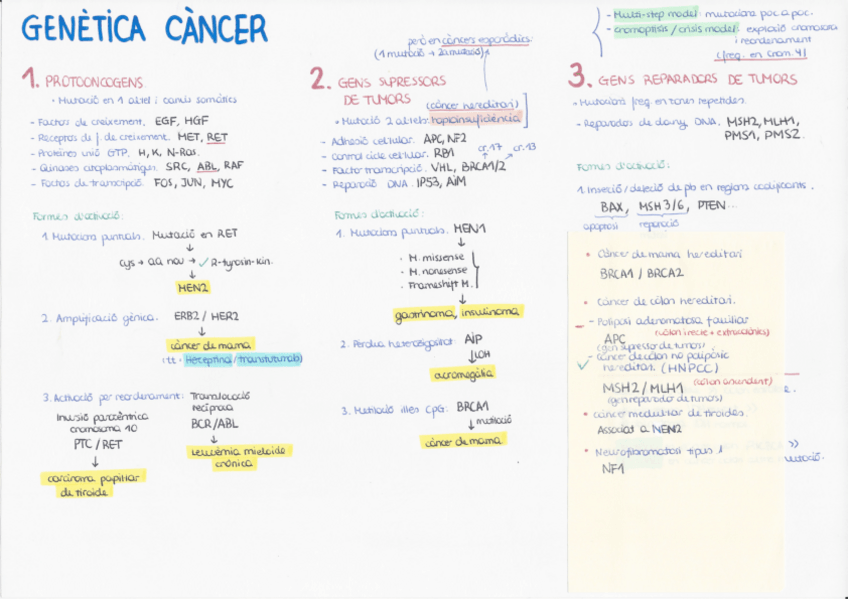 GENÈTICA CÀNCER
però en càncers esporàdics:
(1 mutació → 2a mutació)
- Multi-step model: mutacions poc a poc.
- cromoptisis / crisis model: explosió cromosòmica
reordenament
(freq. en crom. 4)
1. PROTOONCOGENS
• Mutació en 1 al·lel i canvis somàtics
- Factors de creixement. EGF, HGF
- Receptors de f de creixement. MET, RET
- Proteïnes unió GTP. H, K, N-Ras.
- Quinases citoplasmàtiques. SRC, ABL, RAF
- Factors de transcripció. FOS, JUN, MYC
Formes d'activació:
1. Mutacions puntuals. Mutació en RET
↓
cys → aa nou → ✓ R-tyrosin-kin.
↓
MEN2
2. Amplificació gènica. ERB2 / HER2
↓
càncer de mama
tt: Herceptina / trastuzumab)
3. Activació per reordenament:
Inversió paracèntrica
cromosoma 10
PTC / RET
↓
carcinoma papil·lar
de tiroide
Translocació
recíproca
BCR/ABL
↓
Leucèmia mieloide
crònica
2. GENS SUPRESSORS
DE TUMORS
(càncer hereditari)
• Mutació 2 al·lels: haploinsuficiència
- Adhesió cel·lular. APC, NF2
- Control cicle cel·lular. RB1
cr. 17 cr. 13
- Factor transcripció. VHL, BRCA1/2
- Reparació DNA. TP53, ATM
Formes d'activació:
1. Mutacions puntuals. MEN1
• M. missense
• M. nonsense
• Frameshift M.
↓
gastrinoma, insulinoma
2. Pèrdua heterozigositat. AIP
↓ LOH
acromegàlia
3. Metilació illes CpG. BRCA1
↓ metilació
càncer de mama
3. GENS REPARADORS DE TUMORS
• Mutacions freq. en zones repetides.
- Reparadors de dany DNA. MSH2, MLH1,
PMS1, PMS2.
Formes d'activació:
1. Inserció / deleció de pb en regions codificants.
BAX, MSH3/6, PTEN...
apoptosi reparació
• Càncer de mama hereditari
BRCA1 / BRCA2
• Càncer de còlon hereditari.
- Poliposi adenomatosa familiar
APC (còlon i recte + extracolònics)
(gen supressor de tumors)
- Càncer de còlon no polipòsic
hereditari. (HNPCC)
MSH2 / MLH1 (còlon ascendent)
(gen reparador de tumors)
• Càncer medul·lar de tiroides.
Associat a MEN2
• Neurofibromatosi tipus 1
NF1